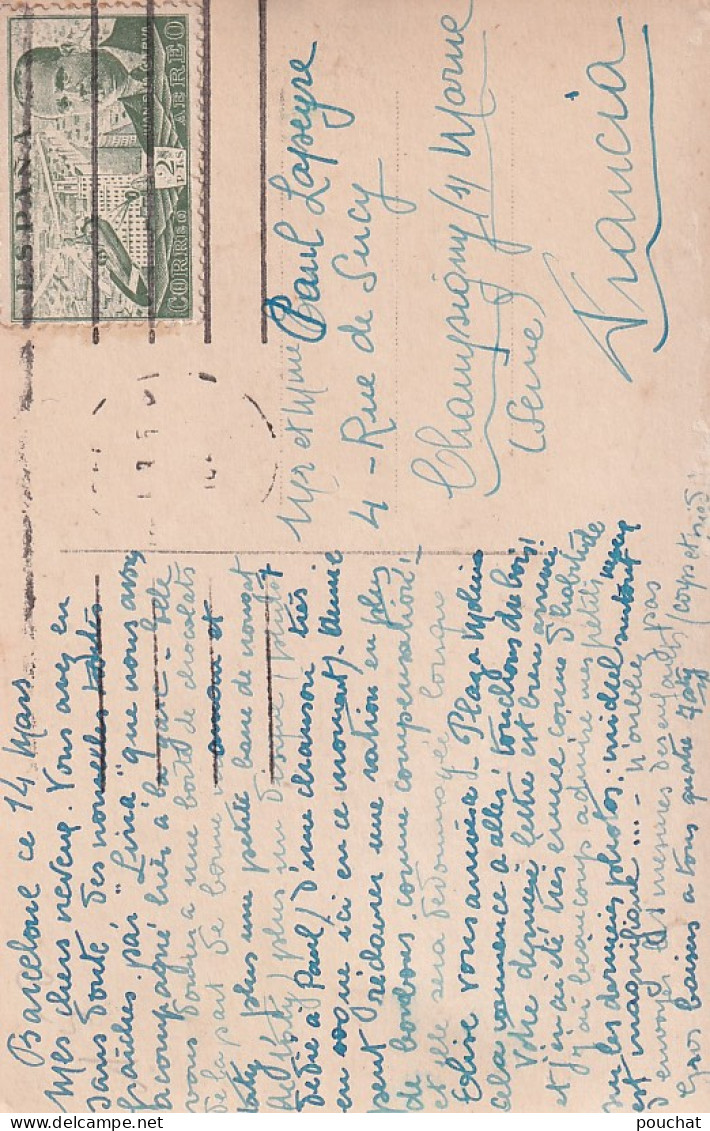 ESPAÑA
JUAN DE LA CIERVA
2 PTS
CORREO AEREO
Barcelone ce 14 Mars
Mes chers neveux. Vous avez eu
sans doute des nouvelles toutes
fraîches par "Liria" que nous avons
accompagné hier à la gare - elle
vous donnera une boite de chocolats
de la part de bonne maman et
Taty, plus une petite barre de nougat
plus un disque
dédié à Paul) d'une chanson très
en vogue ici en ce moment). Annie
peut réclamer une ration en plus
de bonbons comme compensation,
et elle sera dédommagée lorsque
Elise vous arrivera. Plaza Molina
cela commence à aller, touchons du bois!
Votre dernière lettre est bien arrivée
et j'ai été très émue comme d'habitude
j'ai beaucoup admiré mes petits neveux
sur les dernières photos, michel surtout
est magnifique... - N'oublie pas
d'envoyer les mesures des enfants (corps et pied)
Gros baisers à vous quatre Taty
Mr et Mme Paul Lapeyre
4 - Rue de Sucy
Champigny s/ Marne
(Seine)
Francia
pouchat